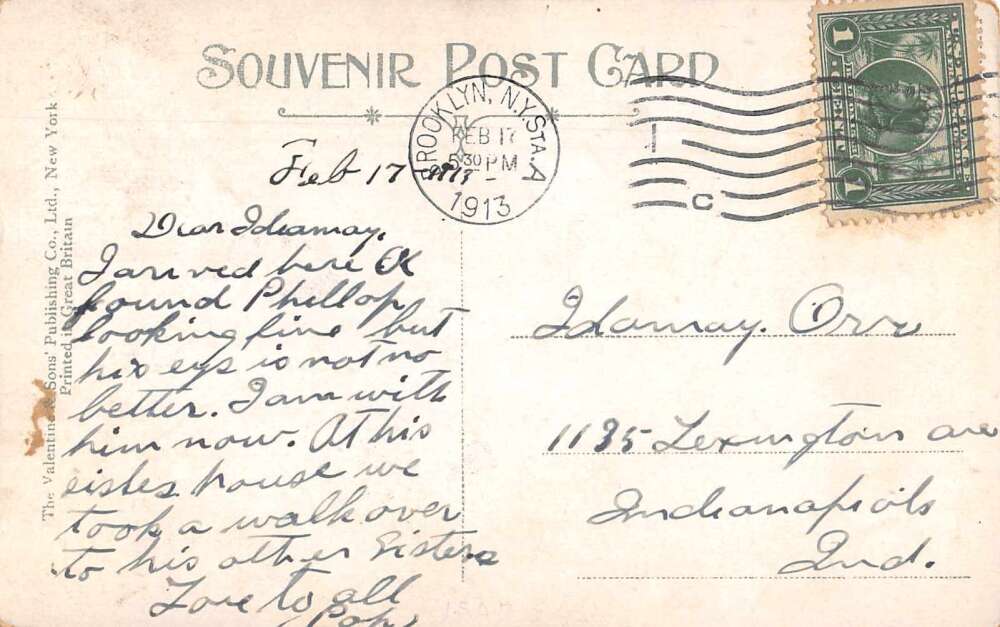 SOUVENIR POST CARD
BROOKLYN, N.Y. STA. A
FEB 17
5 30 PM
1913
C
1 1
The Valentine & Sons' Publishing Co., Ltd., New York
Printed in Great Britain
Feb 17
Dear Idamay,
I arrved here OK
found Phillop
looking fine but
his eys is not no
better. I am with
him now. At his
sister house we
took a walk over
to his other Sisters
Love to all
Idamay. Orr
1135 Lexington ave
Indianapiols
Ind.